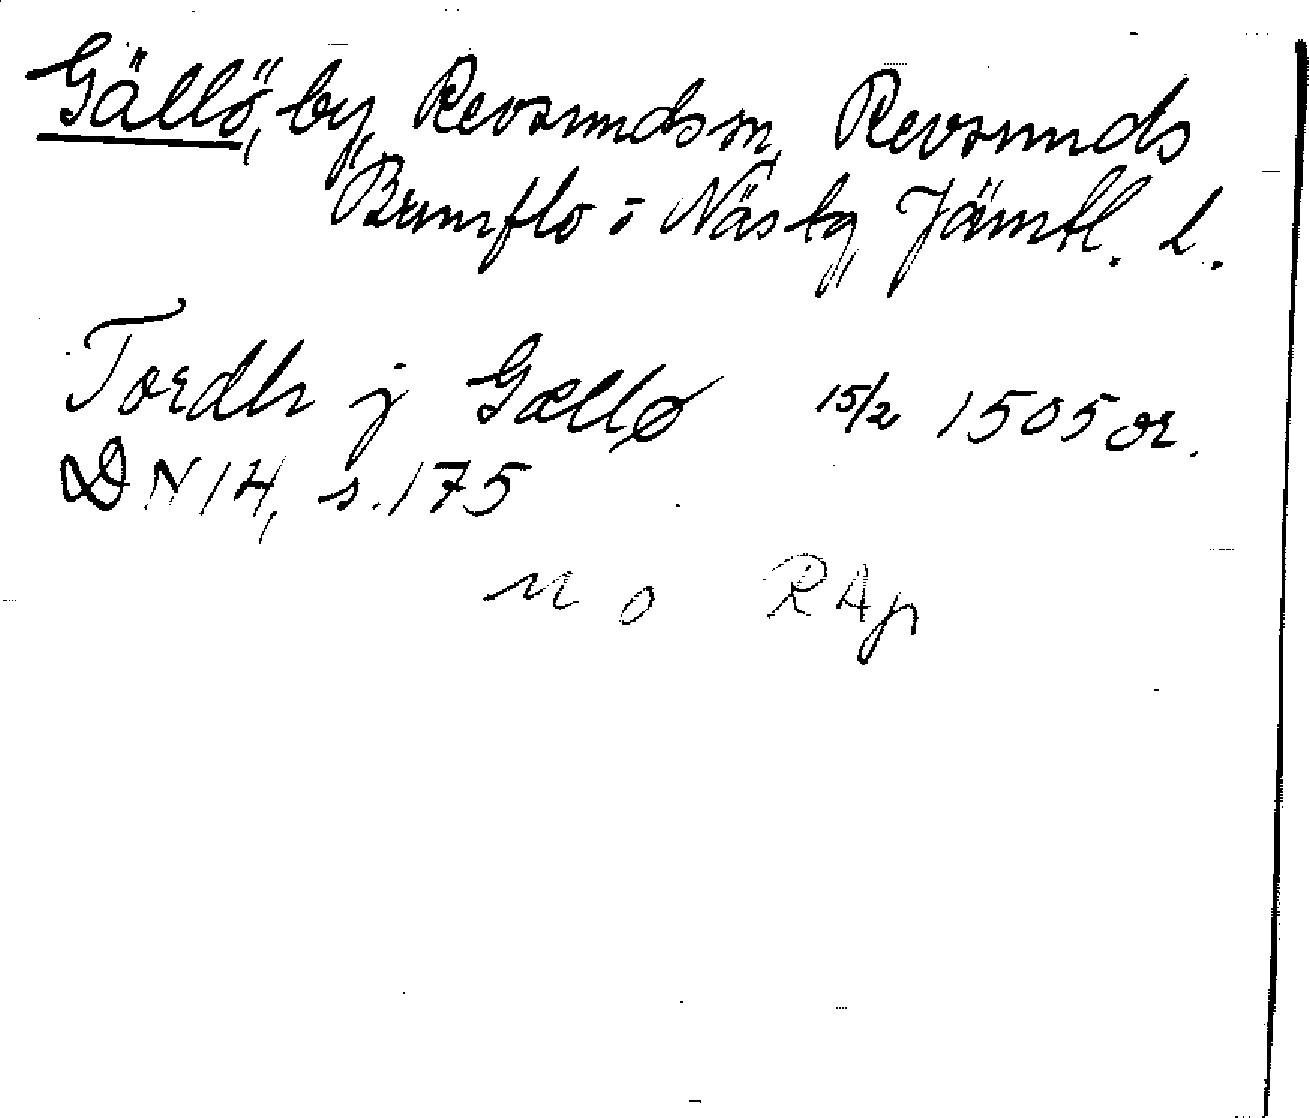 Gällö, by, Revsunds sn, Revsunds
Brunflo o Näs tg, Jämtl. l.
Tordh j Gællø 15/2 1505 or.
DN 14, s. 175
n o RAp